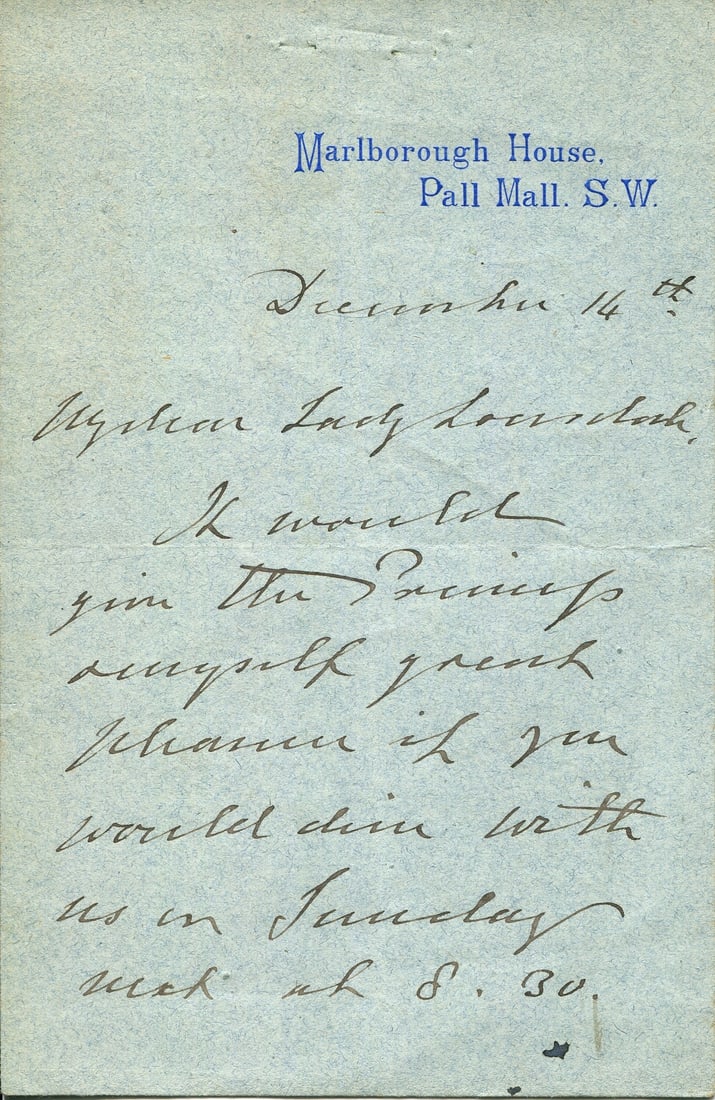 Marlborough House,
Pall Mall. S.W.
December 14th
My dear Lady Lonsdale,
It would
give the Princess
& myself great
pleasure if you
would dine with
us on Sunday
next at 8.30.